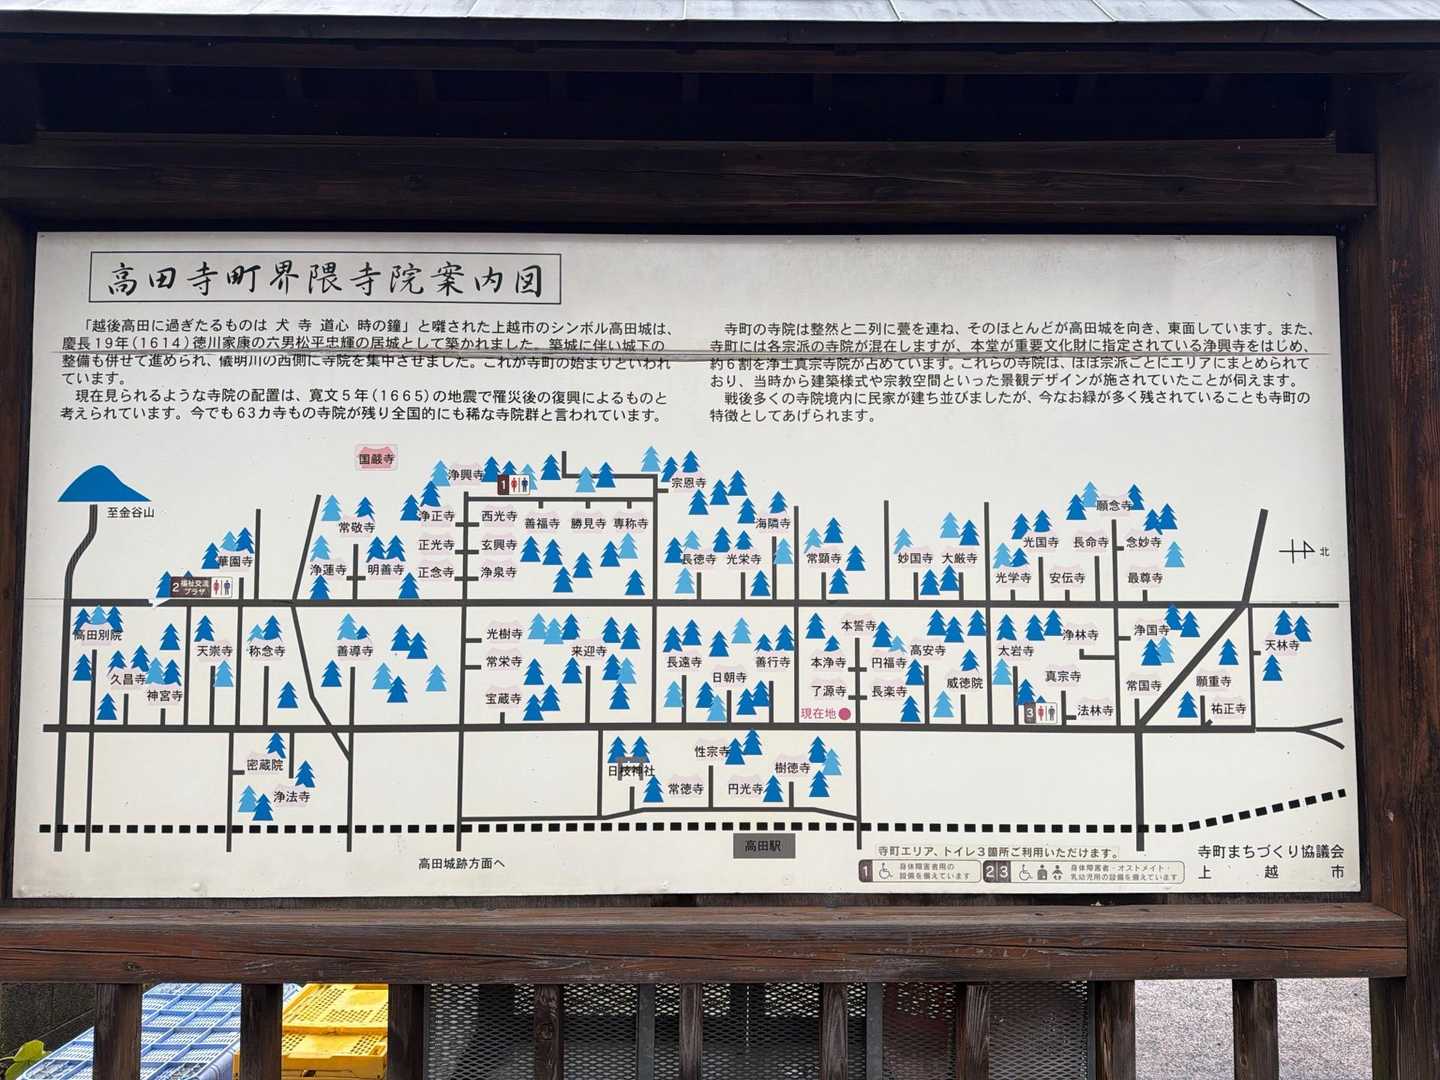 高田寺町界隈寺院案内図
「越後高田に過ぎたるものは 犬 寺 道心 時の鐘」と囃された上越市のシンボル高田城は、
慶長19年(1614)徳川家康の六男松平忠輝の居城として築かれました。築城に伴い城下の
整備も併せて進められ、儀明川の西側に寺院を集中させました。これが寺町の始まりといわれ
ています。
現在見られるような寺院の配置は、寛文5年(1665)の地震で罹災後の復興によるものと
考えられています。今でも63カ寺もの寺院が残り全国的にも稀な寺院群と言われています。
寺町の寺院は整然と二列に甍を連ね、そのほとんどが高田城を向き、東面しています。また、
寺町には各宗派の寺院が混在しますが、本堂が重要文化財に指定されている浄興寺をはじめ、
約6割を浄土真宗寺院が占めています。これらの寺院は、ほぼ宗派ごとにエリアにまとめられて
おり、当時から建築様式や宗教空間といった景観デザインが施されていたことが伺えます。
戦後多くの寺院境内に民家が建ち並びましたが、今なお緑が多く残されていることも寺町の
特徴としてあげられます。
国蔵寺
浄興寺
1
宗恩寺
至金谷山
常敬寺
浄正寺
西光寺
善福寺
勝見寺
専称寺
海隣寺
願念寺
華園寺
浄蓮寺
明善寺
正光寺
玄興寺
正念寺
浄泉寺
長徳寺
光栄寺
常顕寺
妙国寺
大厳寺
光国寺
長命寺
念妙寺
光学寺
安伝寺
最尊寺
北
2
福祉交流
プラザ
高田別院
久昌寺
神宮寺
天崇寺
称念寺
善導寺
光樹寺
常栄寺
宝蔵寺
来迎寺
長遠寺
日朝寺
善行寺
本誓寺
本浄寺
円福寺
了源寺
長楽寺
現在地
高安寺
威徳院
太岩寺
浄林寺
真宗寺
法林寺
3
浄国寺
常国寺
願重寺
祐正寺
天林寺
密蔵院
浄法寺
日枝神社
性宗寺
常徳寺
円光寺
樹徳寺
高田城跡方面へ
高田駅
寺町エリア、トイレ3箇所ご利用いただけます。
1
身体障害者用の
設備を備えています
2 3
身体障害者・オストメイト・
乳幼児用の設備を備えています
寺町まちづくり協議会
上越市